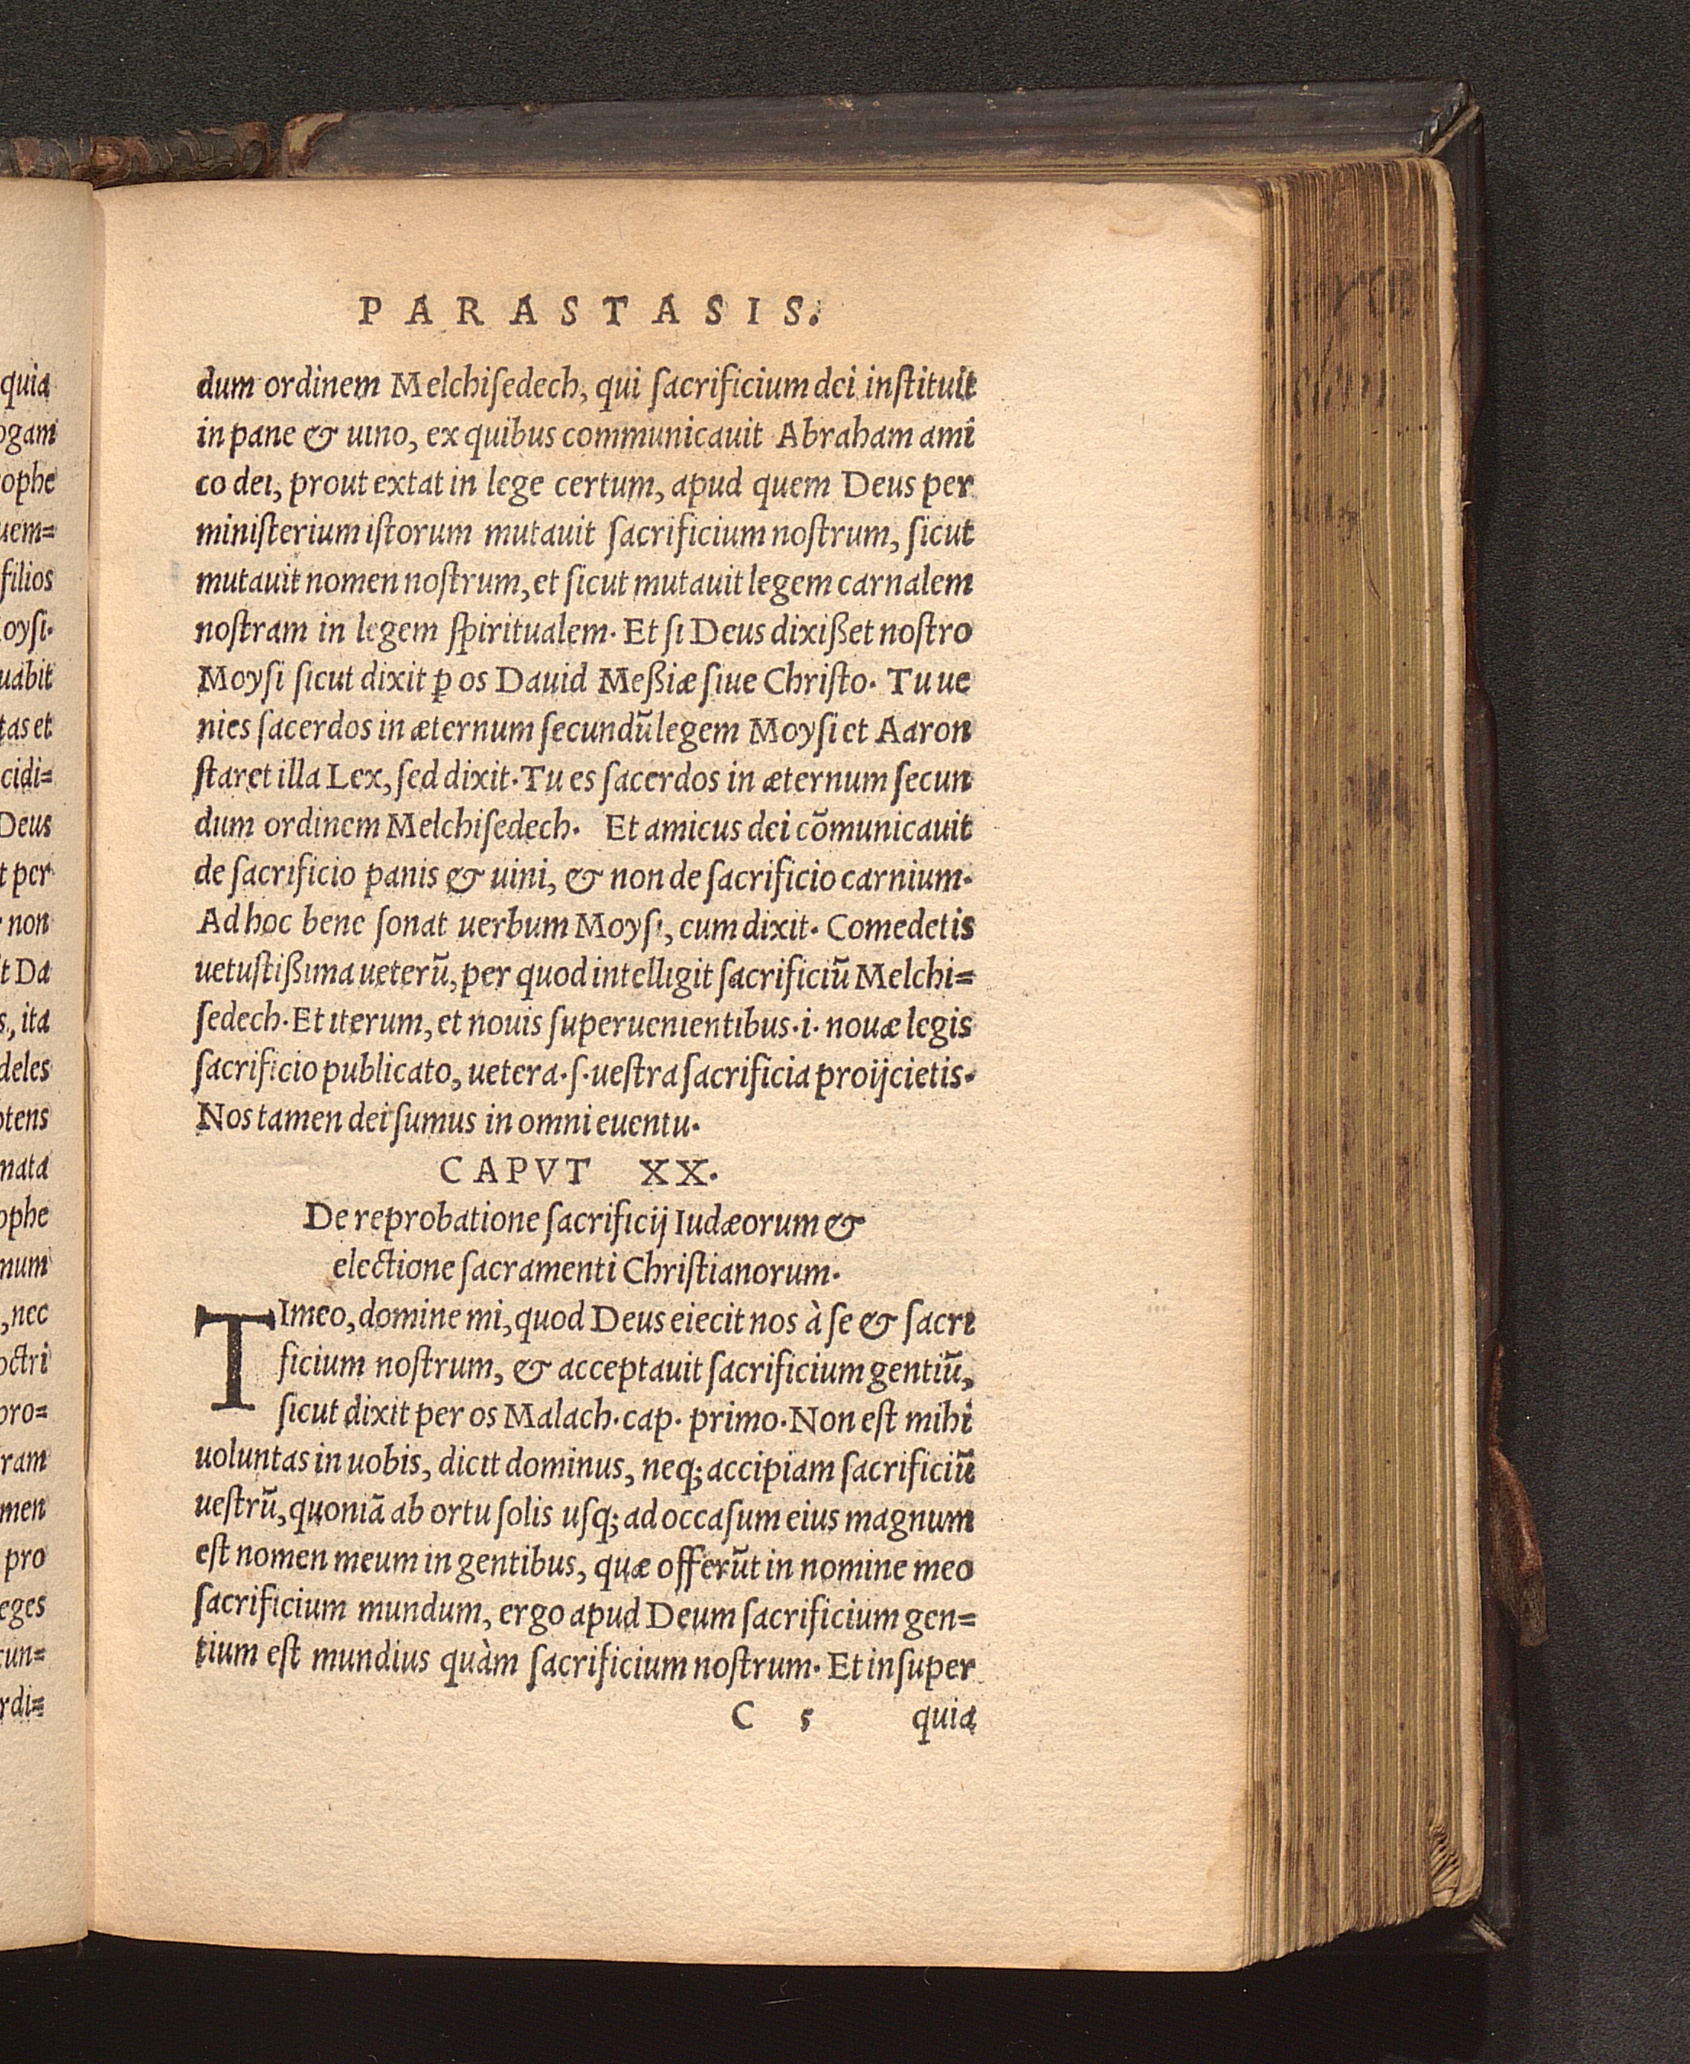 quia
ogam
ophe
uem=
filios
oyſi.
uabit
tas et
cidi=
Deus
t per
non
t Da
s, ita
deles
otens
nata
ophe
num
, nec
octri
pro=
ram
men
pro
eges
cun=
rdi=
PARASTASIS.
dum ordinem Melchiſedech, qui ſacrificium dei inſtituit
in pane & uino, ex quibus communicauit Abraham ami
co dei, prout extat in lege certum, apud quem Deus per
miniſterium iſtorum mutauit ſacrificium noſtrum, ſicut
mutauit nomen noſtrum, et ſicut mutauit legem carnalem
noſtram in legem ſpiritualem. Et ſi Deus dixißet noſtro
Moyſi ſicut dixit ꝑ os Dauid Meßiæ ſiue Chriſto. Tu ue
nies ſacerdos in æternum ſecundũ legem Moyſi et Aaron
ſtaret illa Lex, ſed dixit. Tu es ſacerdos in æternum ſecun
dum ordinem Melchiſedech. Et amicus dei cõmunicauit
de ſacrificio panis & uini, & non de ſacrificio carnium.
Ad hoc bene ſonat uerbum Moyſi, cum dixit. Comedetis
uetuſtißima ueterũ, per quod intelligit ſacrificiũ Melchi=
ſedech. Et iterum, et nouis ſuperuenientibus .i. nouæ legis
ſacrificio publicato, uetera .ſ. ueſtra ſacrificia proijcietis.
Nos tamen dei ſumus in omni euentu.
CAPVT XX.
De reprobatione ſacrificij Iudæorum &
electione ſacramenti Chriſtianorum.
TImeo, domine mi, quod Deus eiecit nos à ſe & ſacri
ficium noſtrum, & acceptauit ſacrificium gentiũ,
ſicut dixit per os Malach. cap. primo. Non eſt mihi
uoluntas in uobis, dicit dominus, neq; accipiam ſacrificiũ
ueſtrũ, quoniã ab ortu ſolis uſq; ad occaſum eius magnum
eſt nomen meum in gentibus, quæ offerũt in nomine meo
ſacrificium mundum, ergo apud Deum ſacrificium gen=
tium eſt mundius quàm ſacrificium noſtrum. Et inſuper
C 5 quia